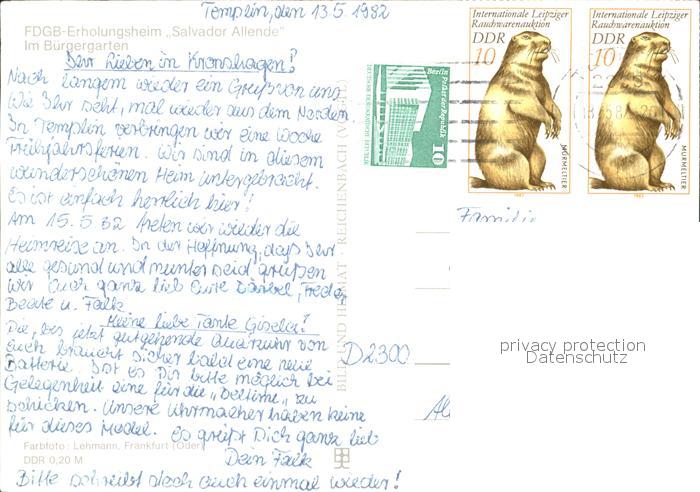 Templin, den 13.5.1982
FDGB-Erholungsheim „Salvador Allende"
Im Bürgergarten
Ihr Lieben in Kronshagen!
Nach langem wieder ein Gruß von uns.
Wie Ihr seht, mal wieder aus dem Norden.
In Templin verbringen wir eine Woche
Frühjahrsferien. Wir sind in diesem
wunderschönen Heim untergebracht.
Es ist einfach herrlich hier!
Am 15.5.82 treten wir wieder die
Heimreise an. In der Hoffnung, daß Ihr
alle gesund und munter seid grüßen
wir Euch ganz lieb Eure Bärbel, Fred,
Beate u. Falk
Meine liebe Tante Gisela!
Die, bis jetzt gutgehende Quarzuhr von
Euch braucht sicher bald eine neue
Batterie. Ist es Dir bitte möglich bei
Gelegenheit eine für die „Beltime" zu
schicken. Unsere Uhrmacher haben keine
für dieses Model. Es grüßt Dich ganz lieb
Dein Falk
Bitte schreibt doch auch einmal wieder!
Farbfoto: Lehmann, Frankfurt (Oder)
DDR 0,20 M
BILD UND HEIMAT · REICHENBACH (VOGTL)
Berlin
Palast der Republik
10
DEUTSCHE DEMOKRATISCHE REPUBLIK
Internationale Leipziger
Rauchwarenauktion
DDR
10
MURMELTIER
1982
Internationale Leipziger
Rauchwarenauktion
DDR
10
MURMELTIER
1982
Familie
D2300
privacy protection
Datenschutz